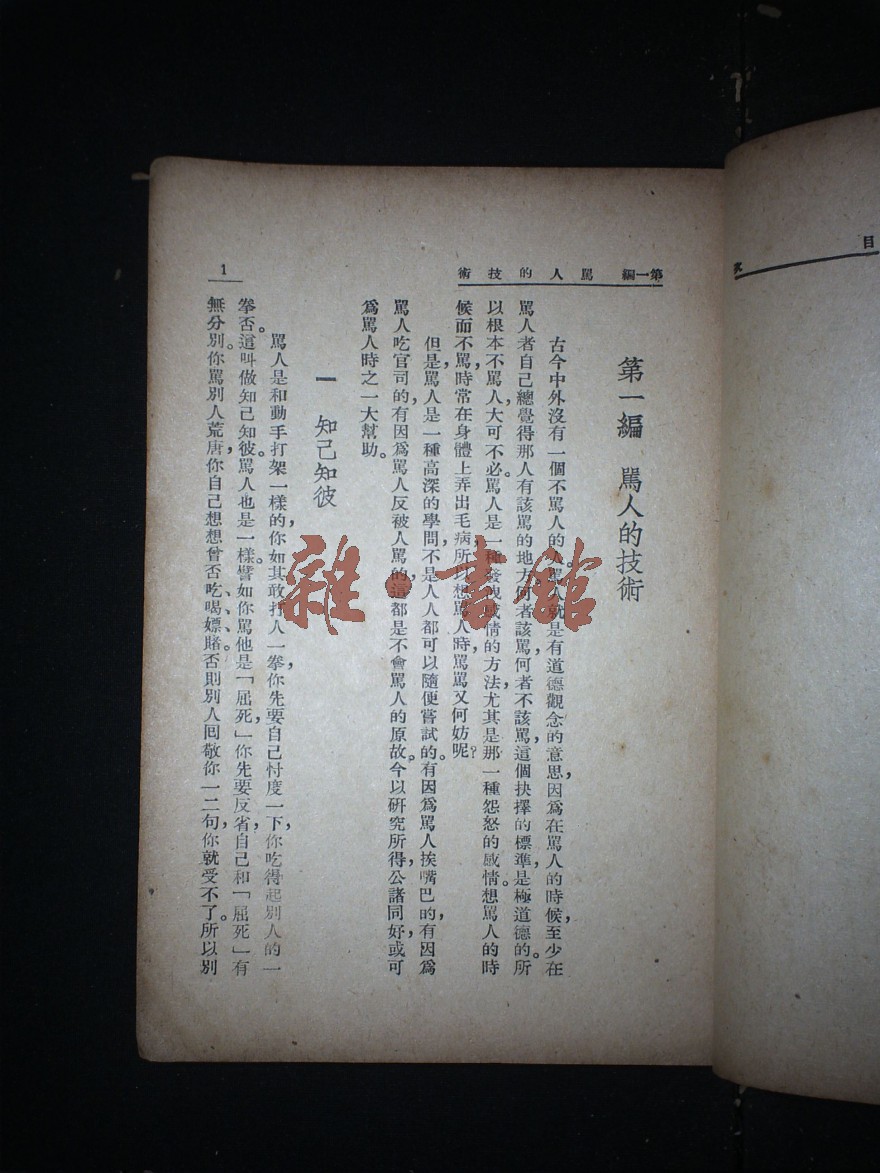 第一編 罵人的技術
第一編 罵人的技術
古今中外沒有一個不罵人的人。罵人就是有道德觀念的意思，因爲在罵人的時候，至少在
罵人者自己總覺得那人有該罵的地方。何者該罵，何者不該罵，這個抉擇的標準，是極道德的。所
以根本不罵人，大可不必。罵人是一種發洩感情的方法，尤其是那一種怨怒的感情。想罵人的時
候而不罵，時常在身體上弄出毛病，所以想罵人時，罵罵又何妨呢？
但是，罵人是一種高深的學問，不是人人都可以隨便嘗試的。有因爲罵人挨嘴巴的，有因爲
罵人吃官司的，有因爲罵人反被人罵的，這都是不會罵人的原故。今以研究所得，公諸同好，或可
爲罵人時之一大幫助。
一 知己知彼
罵人是和動手打架一樣的，你如其敢打人一拳，你先要自己忖度一下，你吃得起別人的一
拳否。這叫做知己知彼。罵人也是一樣。譬如你罵他是「屈死」，你先要反省，自己和「屈死」有
無分別。你罵別人荒唐，你自己想想曾否吃、喝、嫖、賭。否則別人回敬你一二句，你就受不了。所以別
1
目
次
雜·書館